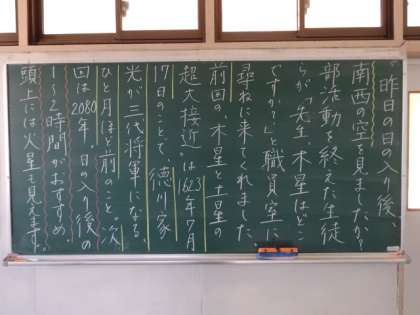 「昨日の日の入り後、
南西の空を見ましたか?
部活動を終えた生徒
らが「先生、木星はどこ
ですか?」と職員室に
尋ねに来てくれました。
前回の、木星と土星の
超大接近〟は1623年7月
17日のことで、徳川家
光が三代将軍になる、
ひと月ほど前のこと。次
回は2080年。日の入り後の
1~2時間がおすすめ。
頭上には火星も見えます。